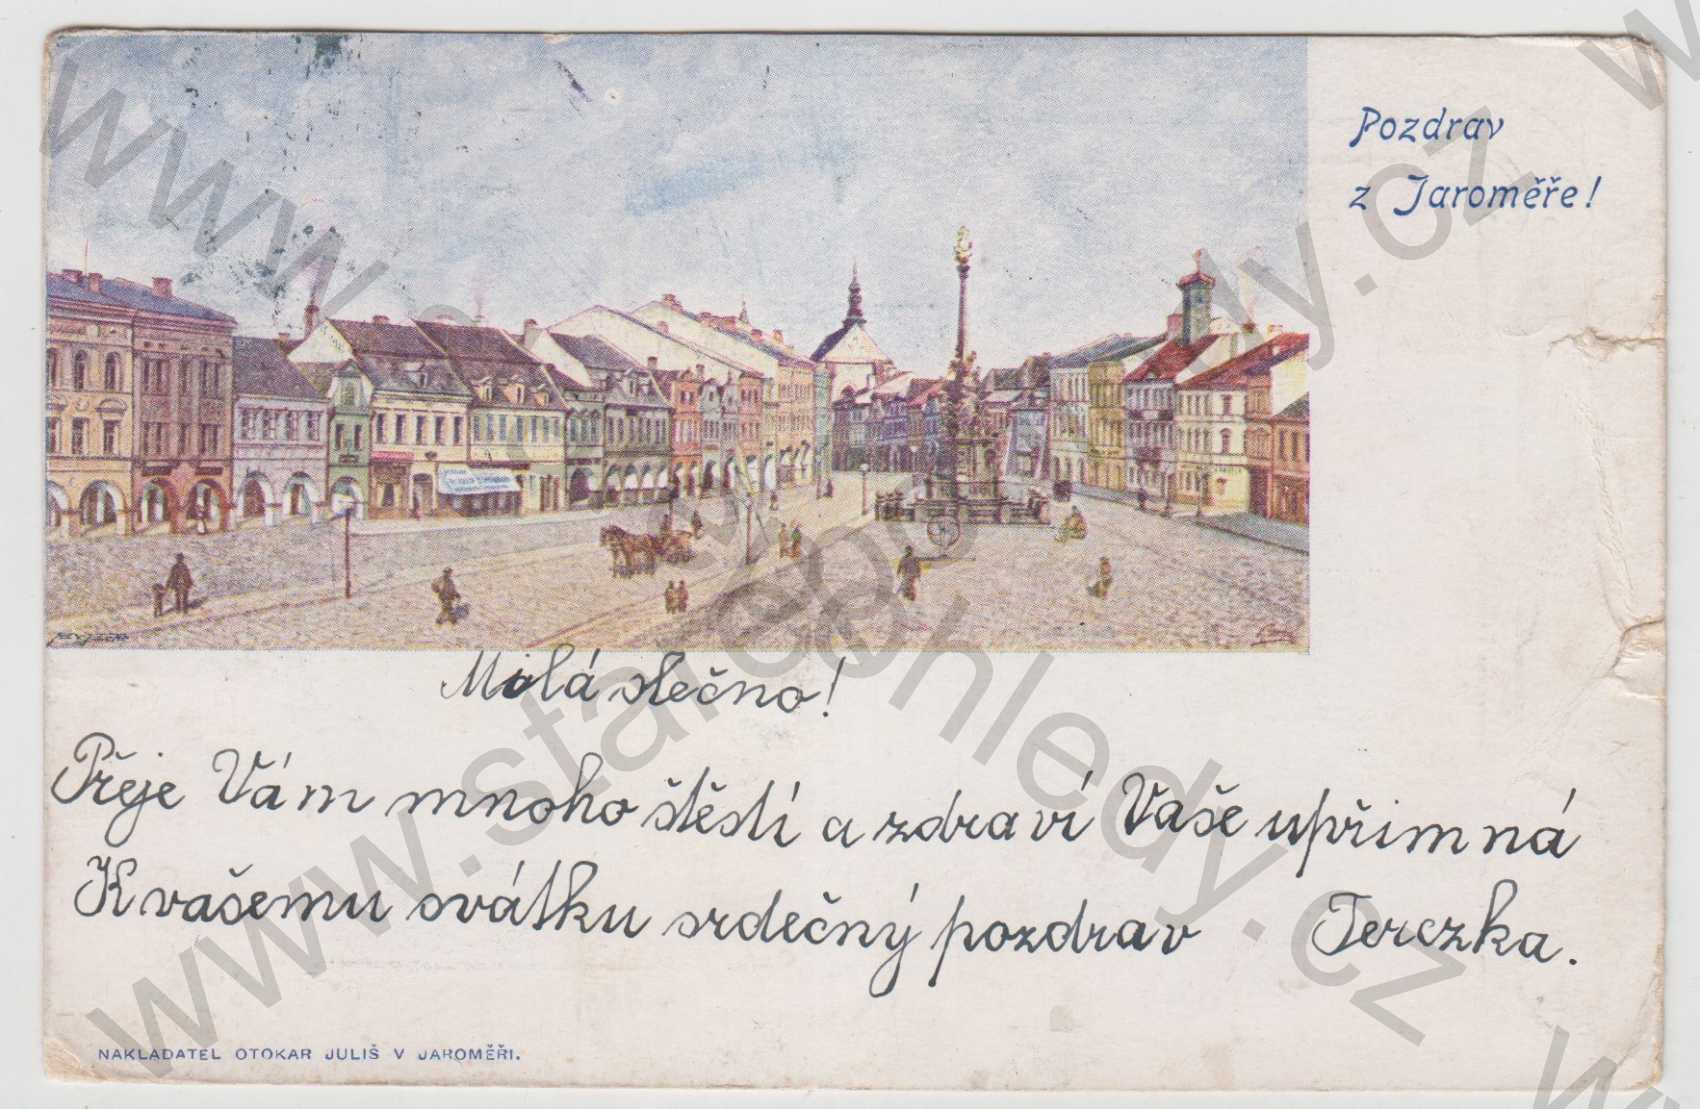 Pozdrav
z Jaroměře!
Milá slečno!
Přeje Vám mnoho štěstí a zdraví Vaše upřimná
K vašemu svátku srdečný pozdrav Terezka.
NAKLADATEL OTOKAR JULIŠ V JAROMĚŘI.
www.starepohledy.cz
www.starepohledy.cz